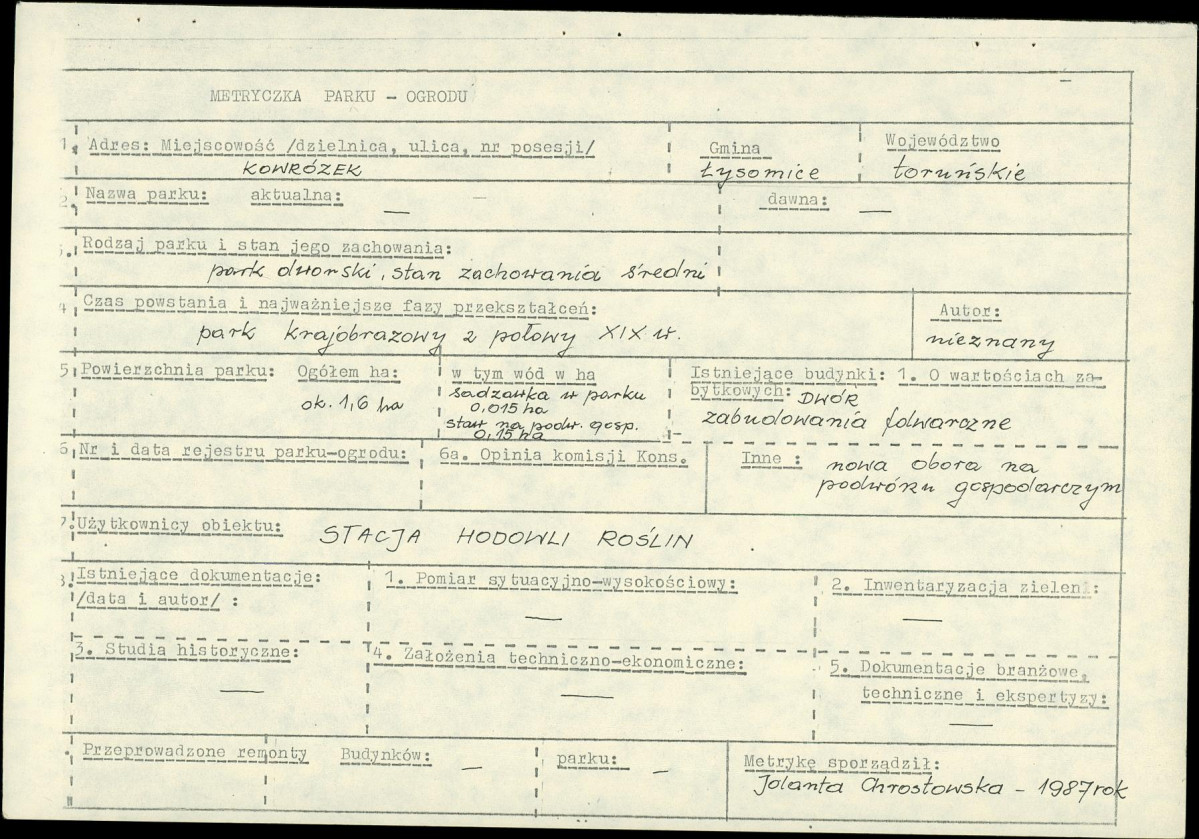 METRYCZKA PARKU - OGRODU
1. Adres: Miejscowość /dzielnica, ulica, nr posesji/
KOWRÓZEK
Gmina
Łysomice
Województwo
toruńskie
2. Nazwa parku: aktualna: —
dawna: —
3. Rodzaj parku i stan jego zachowania:
park dworski, stan zachowania średni
4 Czas powstania i najważniejsze fazy przekształceń:
park krajobrazowy 2 połowy XIX w.
Autor:
nieznany
5 Powierzchnia parku: Ogółem ha:
ok. 1,6 ha
w tym wód w ha
sadzawka w parku
0,015 ha
staw na podw. gosp.
0,15 ha
Istniejące budynki: 1. O wartościach za-
bytkowych: DWÓR
zabudowania folwarczne
6 Nr i data rejestru parku-ogrodu:
6a. Opinia komisji Kons.
Inne : nowa obora na
podwórku gospodarczym
7. Użytkownicy obiektu: STACJA HODOWLI ROŚLIN
8. Istniejące dokumentacje:
/data i autor/ :
1. Pomiar sytuacyjno-wysokościowy:
—
2. Inwentaryzacja zieleni:
—
3. Studia historyczne:
—
4. Założenia techniczno-ekonomiczne:
—
5. Dokumentacje branżowe,
techniczne i ekspertyzy:
—
. Przeprowadzone remonty Budynków: —
parku: —
Metrykę sporządził:
Jolanta Chrostowska - 1987 rok